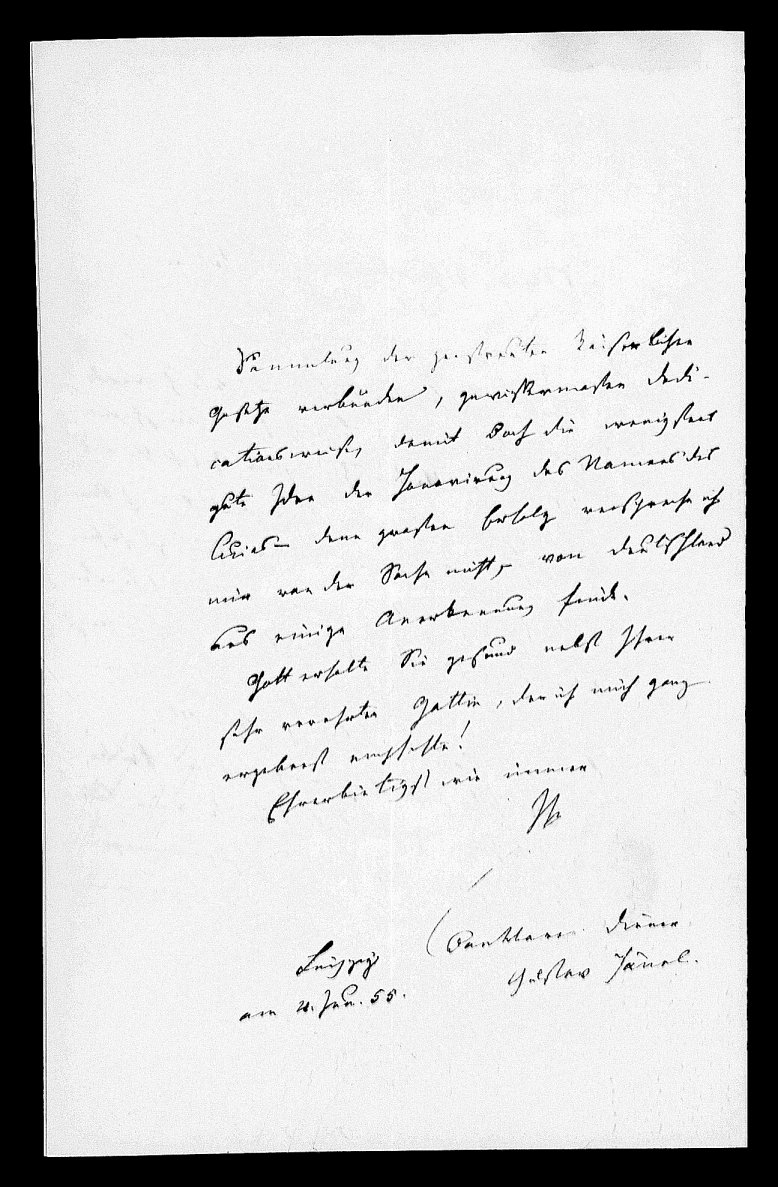 Sammlung der zerstreuten Kaiserlichen
Gesetze verbunden, gewissermassen dedi-
cationsweise, damit doch die wenigstens
gute Idee der Honorirung des Namens des
Cujas – denn grossen Erfolg verspreche ich
mir von der Sache nicht, – von Deutschland
aus einige Anerkennung finde.
Gott erhalte Sie gesund nebst Ihrer
sehr verehrten Gattin, der ich mich ganz
ergebenst empfehle!
Ehrerbietigst wie immer
Ihr
dankbarer Diener
Gustav Hänel.
Leipzig
am 4. Jan. 55.